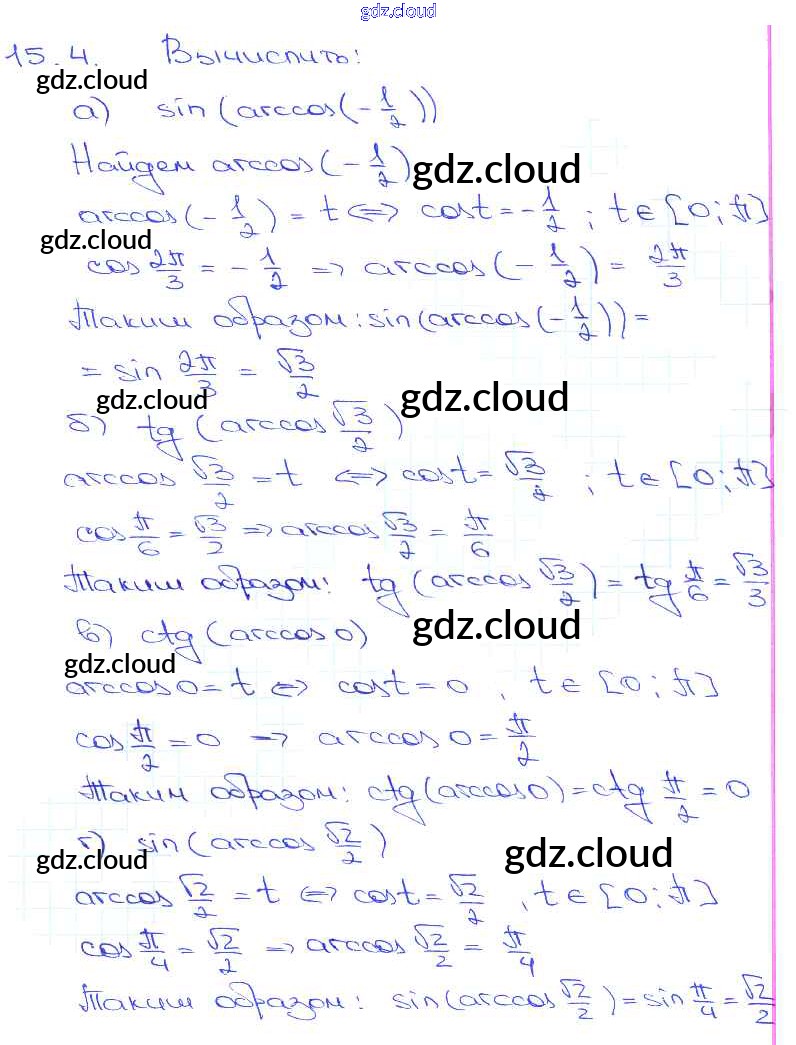 gdz.cloud
15.4. Вычислить:
gdz.cloud
а) sin(arccos(-1/2))
Найдем arccos(-1/2)
gdz.cloud
arccos(-1/2) = t ⇔ cost = -1/2 ; t ∈ [0; π]
gdz.cloud
cos 2π/3 = -1/2 ⇒ arccos(-1/2) = 2π/3
Таким образом: sin(arccos(-1/2)) =
= sin 2π/3 = √3/2
gdz.cloud gdz.cloud
б) tg(arccos √3/2)
arccos √3/2 = t ⇔ cost = √3/2 ; t ∈ [0; π]
cos π/6 = √3/2 ⇒ arccos √3/2 = π/6
Таким образом: tg(arccos √3/2) = tg π/6 = √3/3
в) ctg(arccos 0)
gdz.cloud
gdz.cloud
arccos 0 = t ⇔ cost = 0 , t ∈ [0; π]
cos π/2 = 0 → arccos 0 = π/2
Таким образом: ctg(arccos 0) = ctg π/2 = 0
г) sin(arccos √2/2)
gdz.cloud gdz.cloud
arccos √2/2 = t ⇔ cost = √2/2 , t ∈ [0; π]
cos π/4 = √2/2 ⇒ arccos √2/2 = π/4
Таким образом: sin(arccos √2/2) = sin π/4 = √2/2